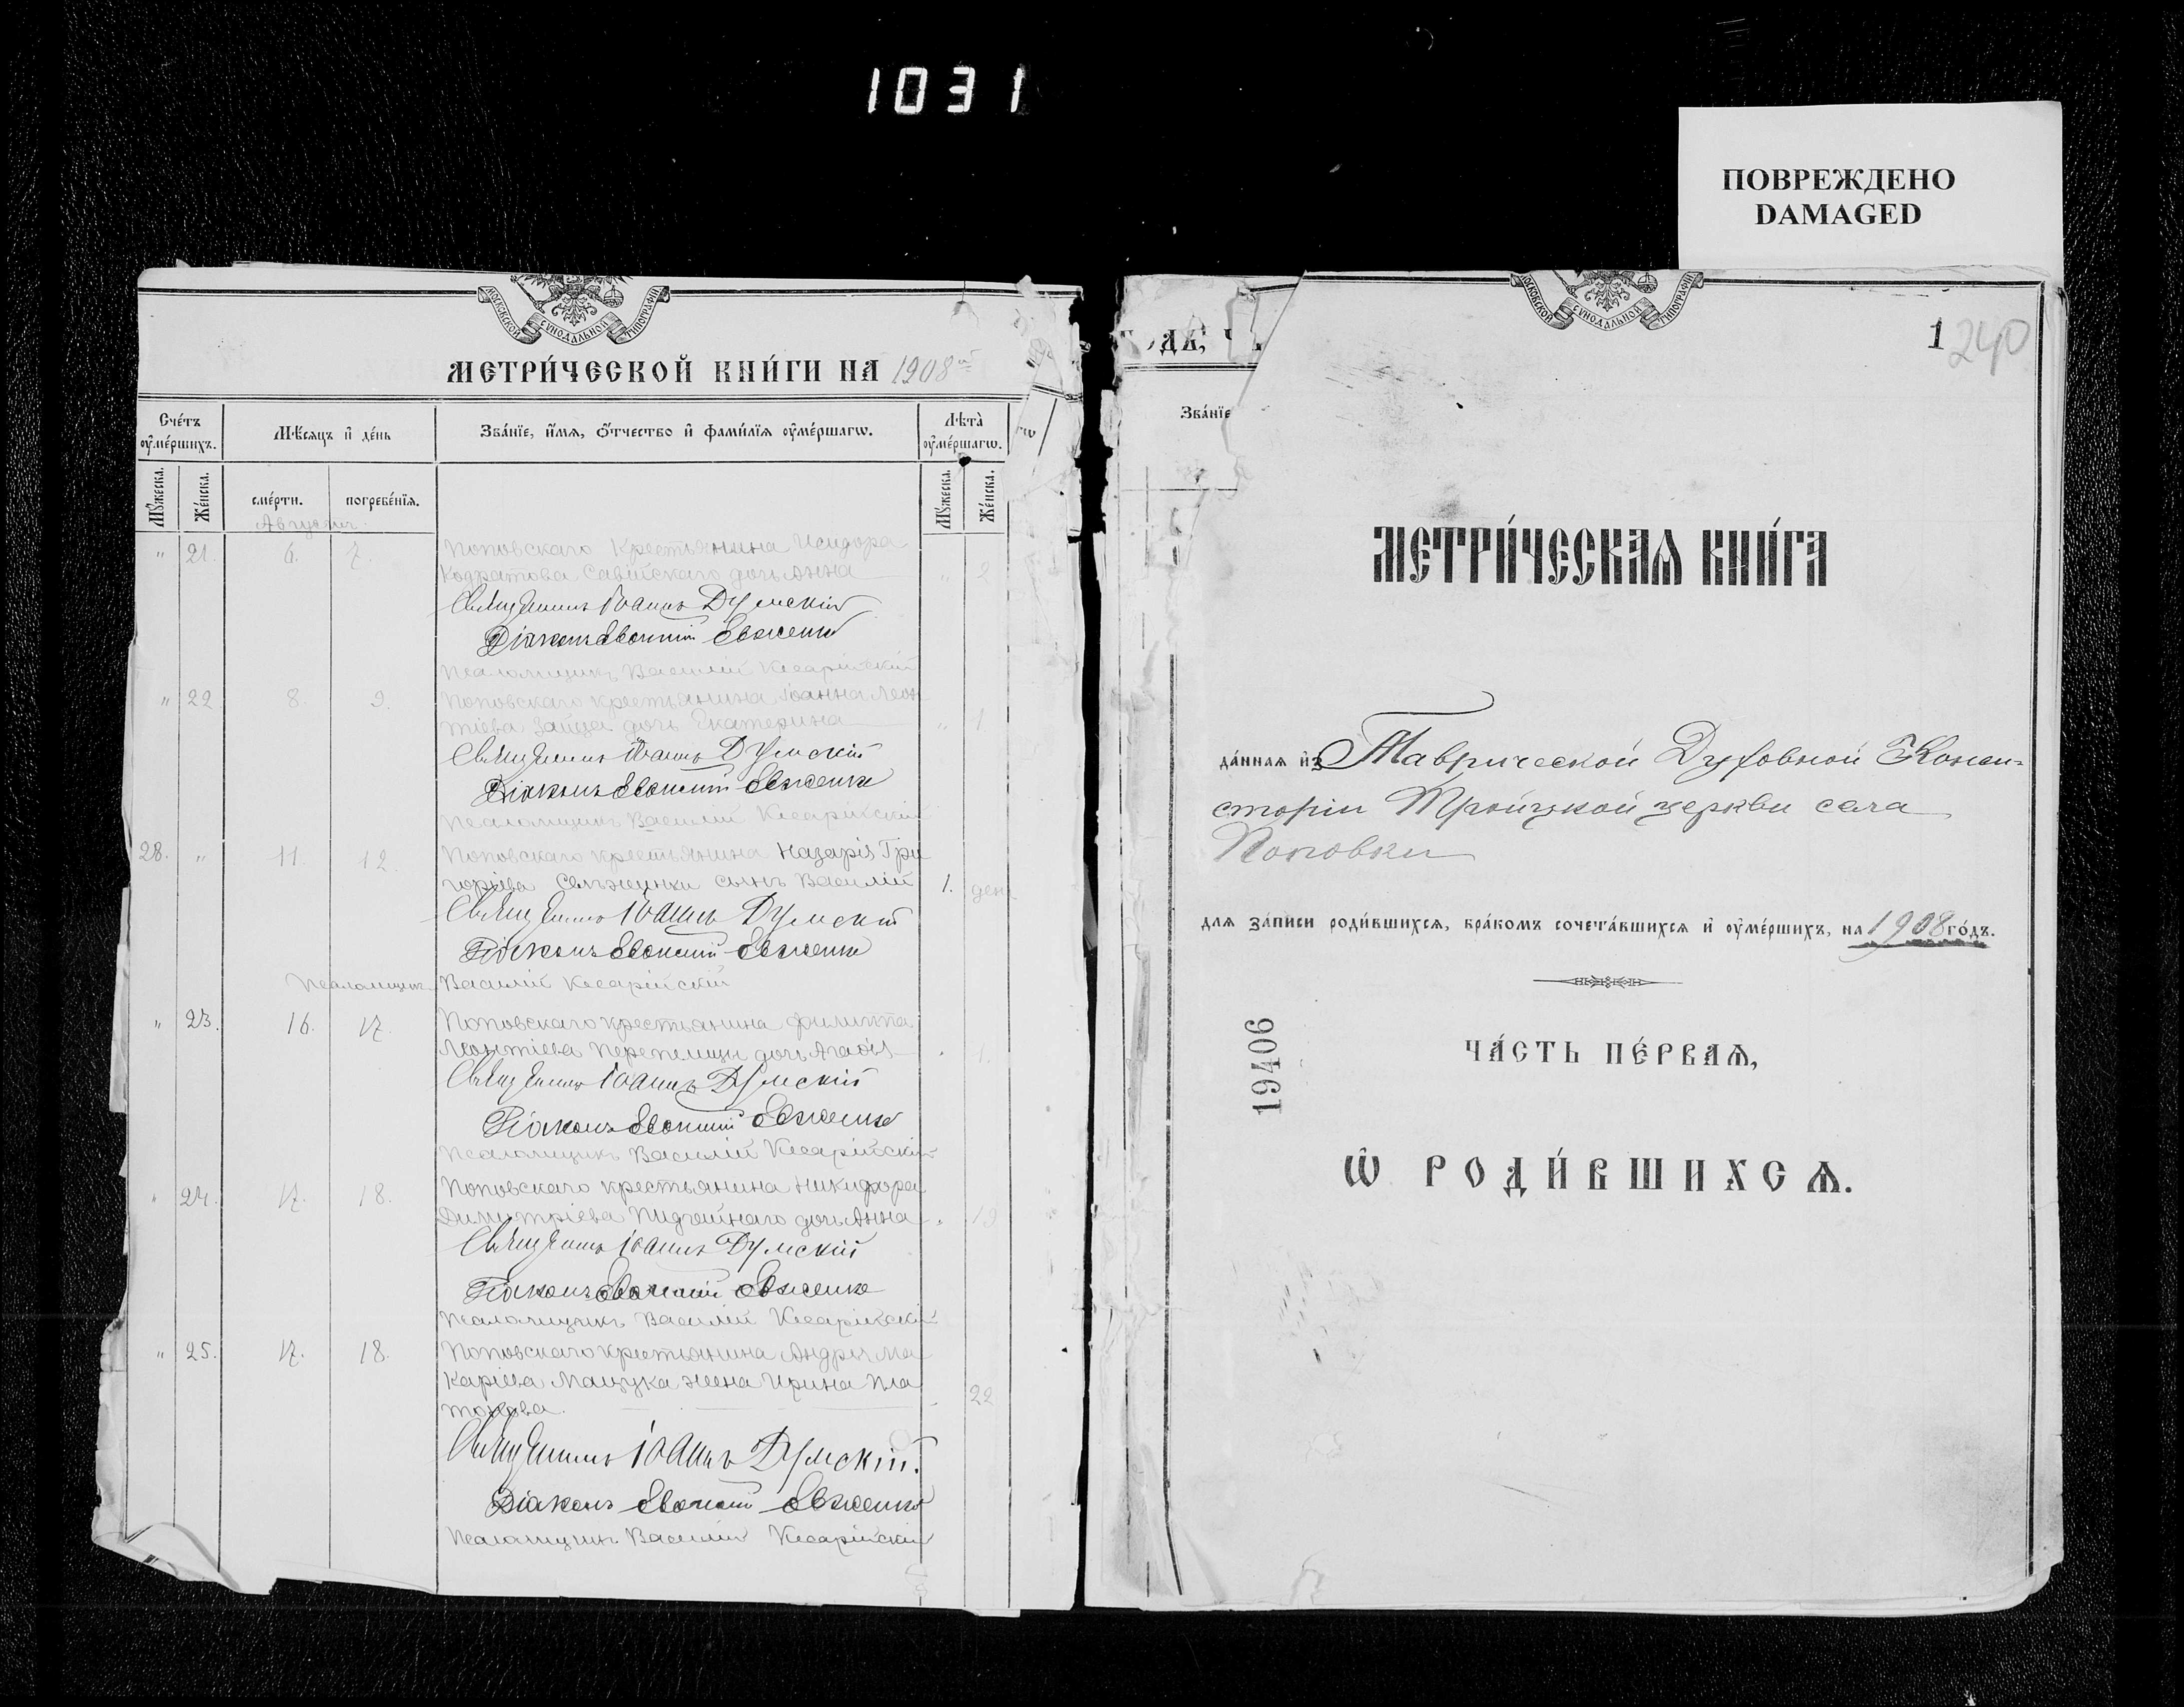 1031
ПОВРЕЖДЕНО
DAMAGED
МОСКОВСКОЙ СѴНОДАЛЬНОЙ ТИПОГРАФІИ
МЕТРИ́ЧЕСКОЙ КНИ́ГИ НА 1908
Сче́тъ оумéршихъ.
Мѣ́сяцъ и де́нь
Зва́нїе, и́мя, ѻ́тчество и фами́лїя оуме́ршагѡ.
Лѣта̀ оуме́ршагѡ.
Мꙋ́жеска.
Же́нска.
сме́рти.
погребе́нїя.
Мꙋ́жеска.
Же́нска.
Августъ
" 21. 6. 7. Поповскаго крестьянина Исидора
Кодратова Савійскаго дочь Анна " 2
Священникъ Іоаннъ Думскій
Діаконъ
Псаломщикъ Василій Кесарійскій
" 22 8. 9. Поповскаго крестьянина Іоанна Леон
тіева Зайца дочь Екатерина " 1
Священникъ Іоаннъ Думскій
Діаконъ
Псаломщикъ Василій Кесарійскій
28. " 11. 12. Поповскаго крестьянина Назарія Гри
горіева сынъ Василій 1. ден
Священникъ Іоаннъ Думскій
Діаконъ
Псаломщикъ Василій Кесарійскій
" 23. 16. 17. Поповскаго крестьянина Филиппа
Леонтіева Перепелицы дочь Агафія 1.
Священникъ Іоаннъ Думскій
Діаконъ
Псаломщикъ Василій Кесарійскій
" 24. 17. 18. Поповскаго крестьянина Никифора
Димитріева дочь Анна
Священникъ Іоаннъ Думскій
Діаконъ
Псаломщикъ Василій Кесарійскій
" 25. 17. 18. Поповскаго крестьянина Андрея Ма
каріева Мацука жена Ирина Пла
тонова. 22
Священникъ Іоаннъ Думскій.
Діаконъ
Псаломщикъ Василій Кесарійскій
МОСКОВСКОЙ СѴНОДАЛЬНОЙ ТИПОГРАФІИ
1 240
Зва́нїе
МЕТРИ́ЧЕСКАѦ КНИ́ГА
да́нная из Таврической Духовной Конси-
сторіи Троицкой церкви села
Поповки
для за́писи роди́вшихся, бра́комъ сочета́вшихся и оуме́ршихъ, на 1908 го́дъ.
19406
ЧА́СТЬ ПЕ́РВАѦ,
Ѡ РОДИ́ВШИХСѦ.